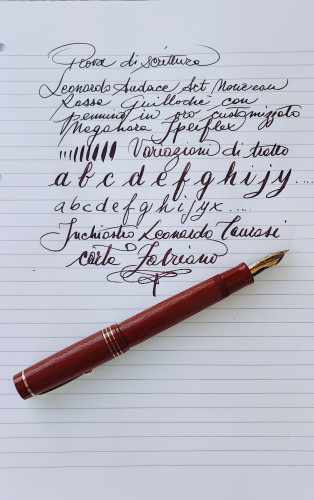 Prova di scrittura
Leonardo Audace Art Nouveau
Rossa Guilloché con
pennino in oro customizzato
Meganara Sperflex
Variazioni di tratto
a b c d e f g h i j y....
a b c d e f g h i j y x....
Inchiostro Leonardo Taurasi
carta Fabriano